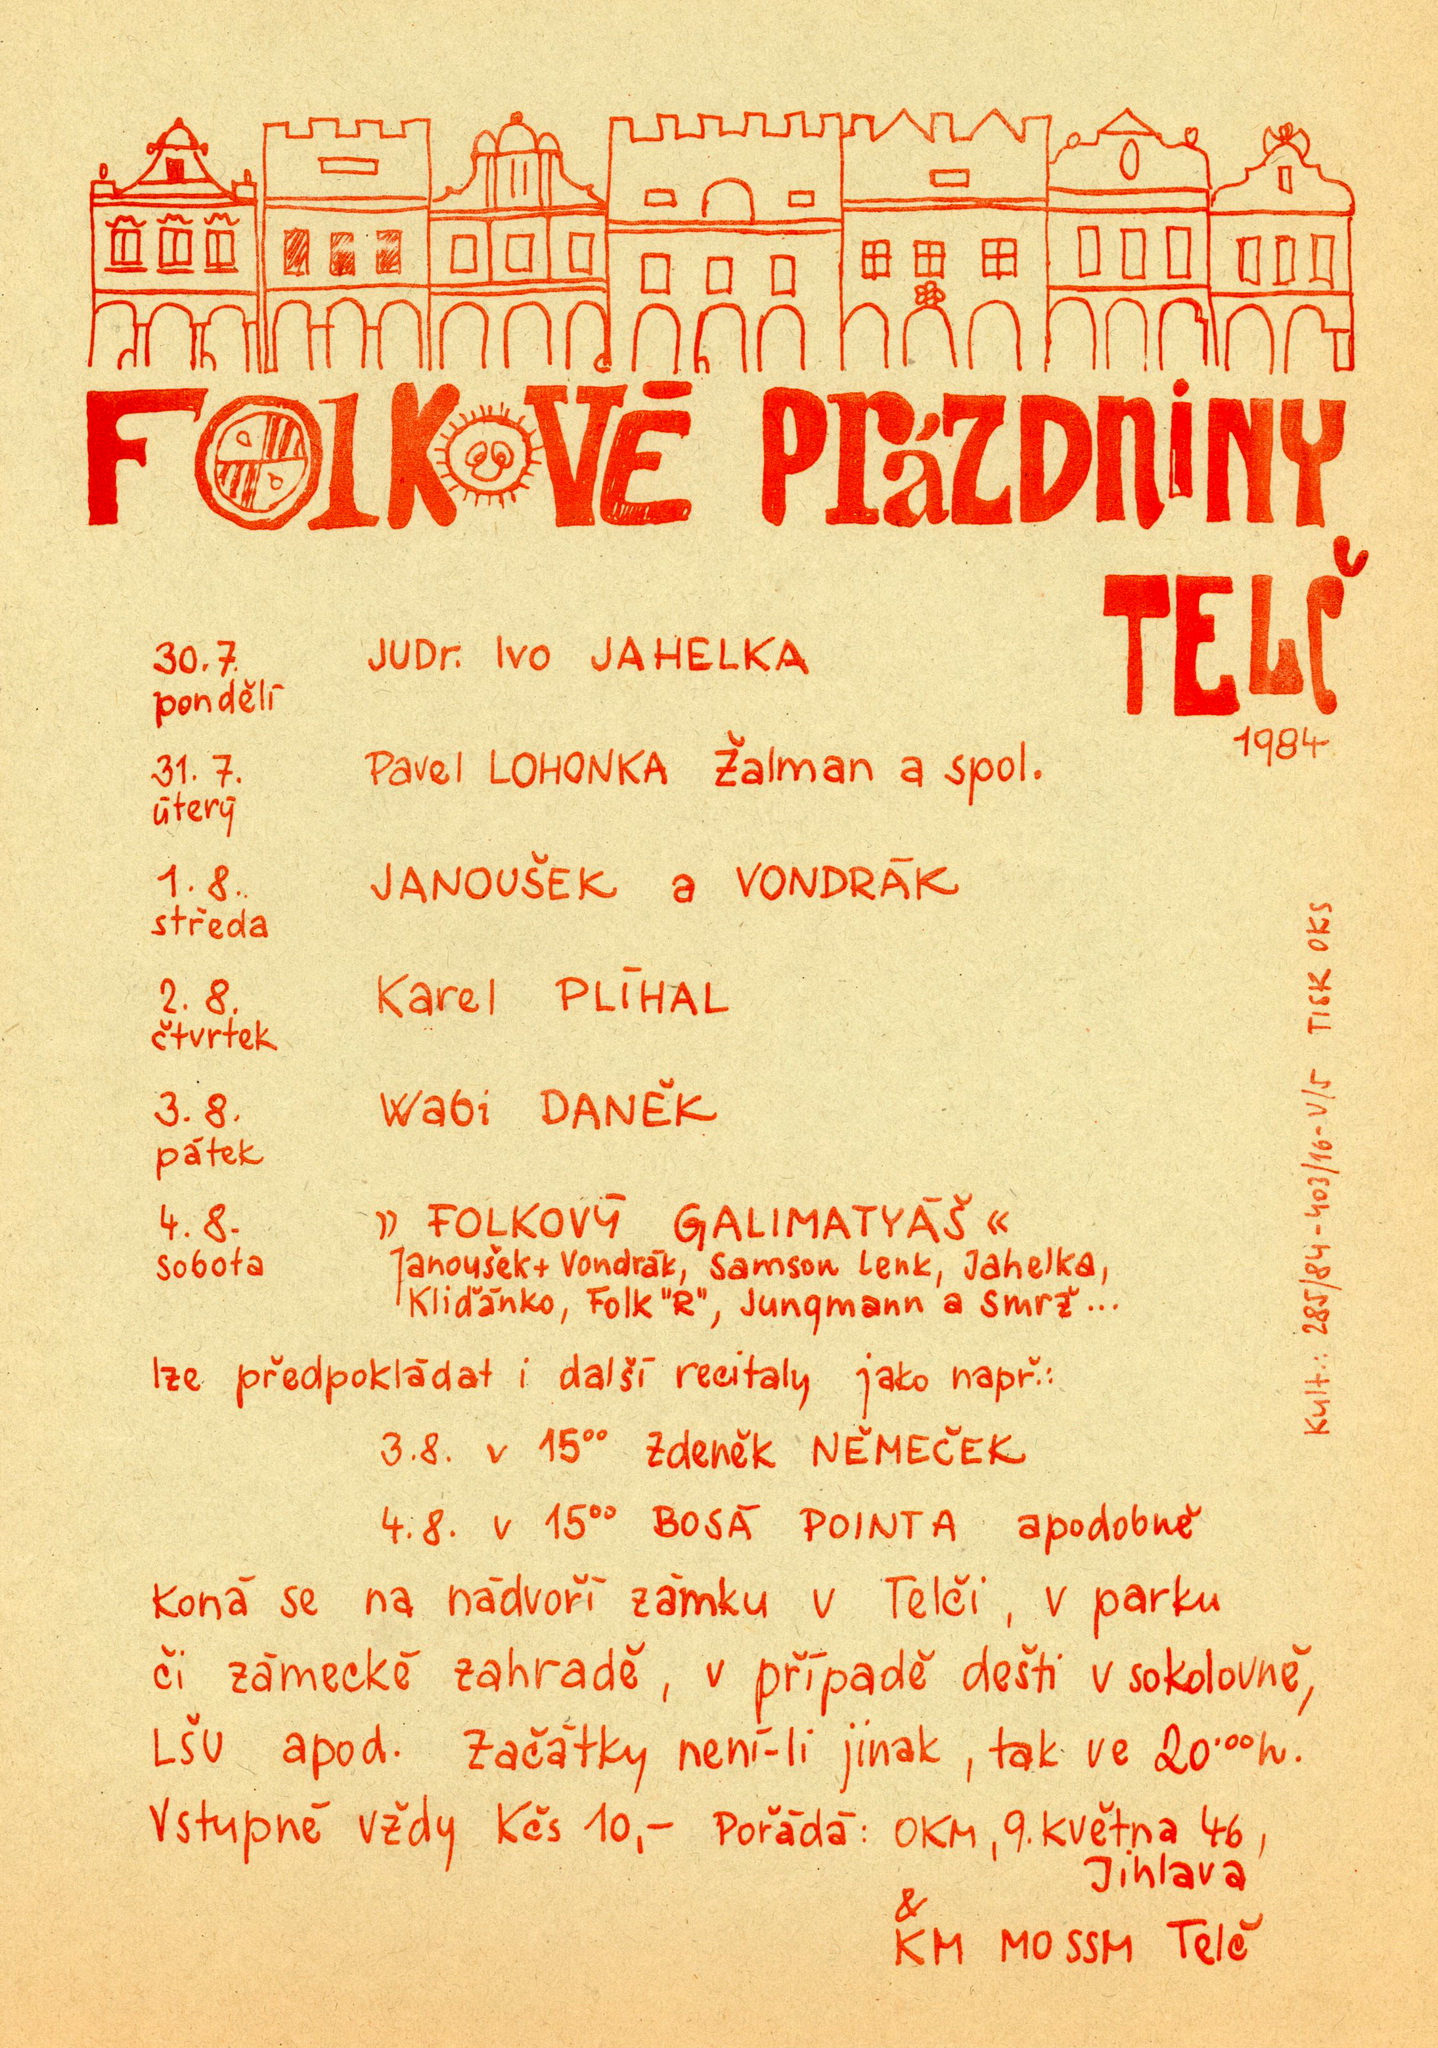 FOLKOVÉ PRÁZDNINY
TELČ
1984
30.7. JUDr. Ivo JAHELKA
pondělí
31.7. Pavel LOHONKA Žalman a spol.
úterý
1.8. JANOUŠEK a VONDRÁK
středa
2.8. Karel PLÍHAL
čtvrtek
3.8. Wabi DANĚK
pátek
4.8. »FOLKOVÝ GALIMATYÁŠ«
sobota Janoušek+Vondrák, Samson Lenk, Jahelka,
Kliďánko, Folk "R", Jungmann a Smrž...
lze předpokládat i další recitaly jako např.:
3.8. v 15⁰⁰ Zdeněk NĚMEČEK
4.8. v 15⁰⁰ BOSÁ POINTA apodobně
Koná se na nádvoří zámku v Telči, v parku
či zámecké zahradě, v případě dešti v sokolovně,
LŠU apod. Začátky není-li jinak, tak ve 20.⁰⁰h.
Vstupné vždy Kčs 10,- Pořádá: OKM, 9. května 46,
Jihlava
&
KM MO SSM Telč
Kult.: 285/84-403/16-V/5 TISK OKS